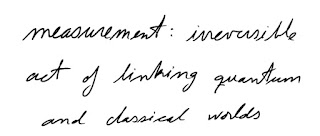 measurement: irreversible
act of linking quantum
and classical worlds